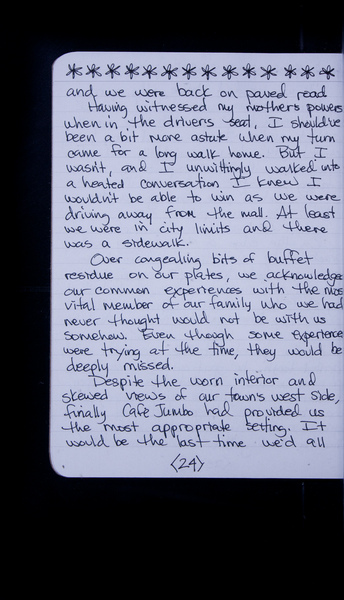 and we were back on paved read
Having witnessed my mother's powers
when in the drivers seat, I should've
been a bit more astute when my turn
came for a long walk home. But I
wasn't, and I unwittingly walked into
a heated conversation I knew I
wouldn't be able to win as we were
driving away from the mall. At least
we were in city limits and there
was a sidewalk.
Over congealing bits of buffet
residue on our plates, we acknowledge
our common experiences with the mos
vital member of our family who we had
never thought would not be with us
somehow. Even though some experience
were trying at the time, they would be
deeply missed.
Despite the worn interior and
skewed views of our town's west side,
finally Café Jumbo had provided us
the most appropriate setting. It
would be the last time we'd all
<24>